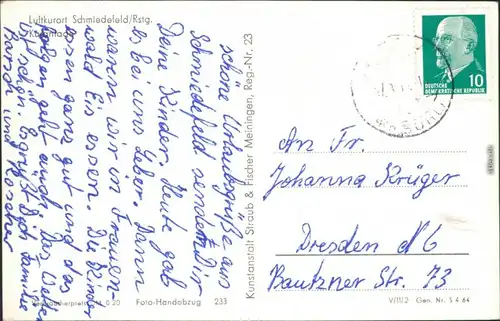 Luftkurort Schmiedefeld/Rstg.
schöne Urlaubsgrüße aus
Schmiedefeld sendet Dir
Deine Kinder. Heute gab
es bei uns Leber. Dann
waren wir in Frauen-
wald Eis essen. Die Kinder
essen ganz gut und das
geht auch. Das Wetter
ist schön. Es grüßt Dich Familie
und
Kunstanstalt Straub & Fischer Meiningen, Reg.-Nr. 23
Foto-Handabzug 233
DEUTSCHE
DEMOKRATISCHE REPUBLIK
10
SUHL
An Fr.
Johanna Krüger
Dresden N6
Bautzner Str. 73
V/11/2 Gen. Nr. S 4 64